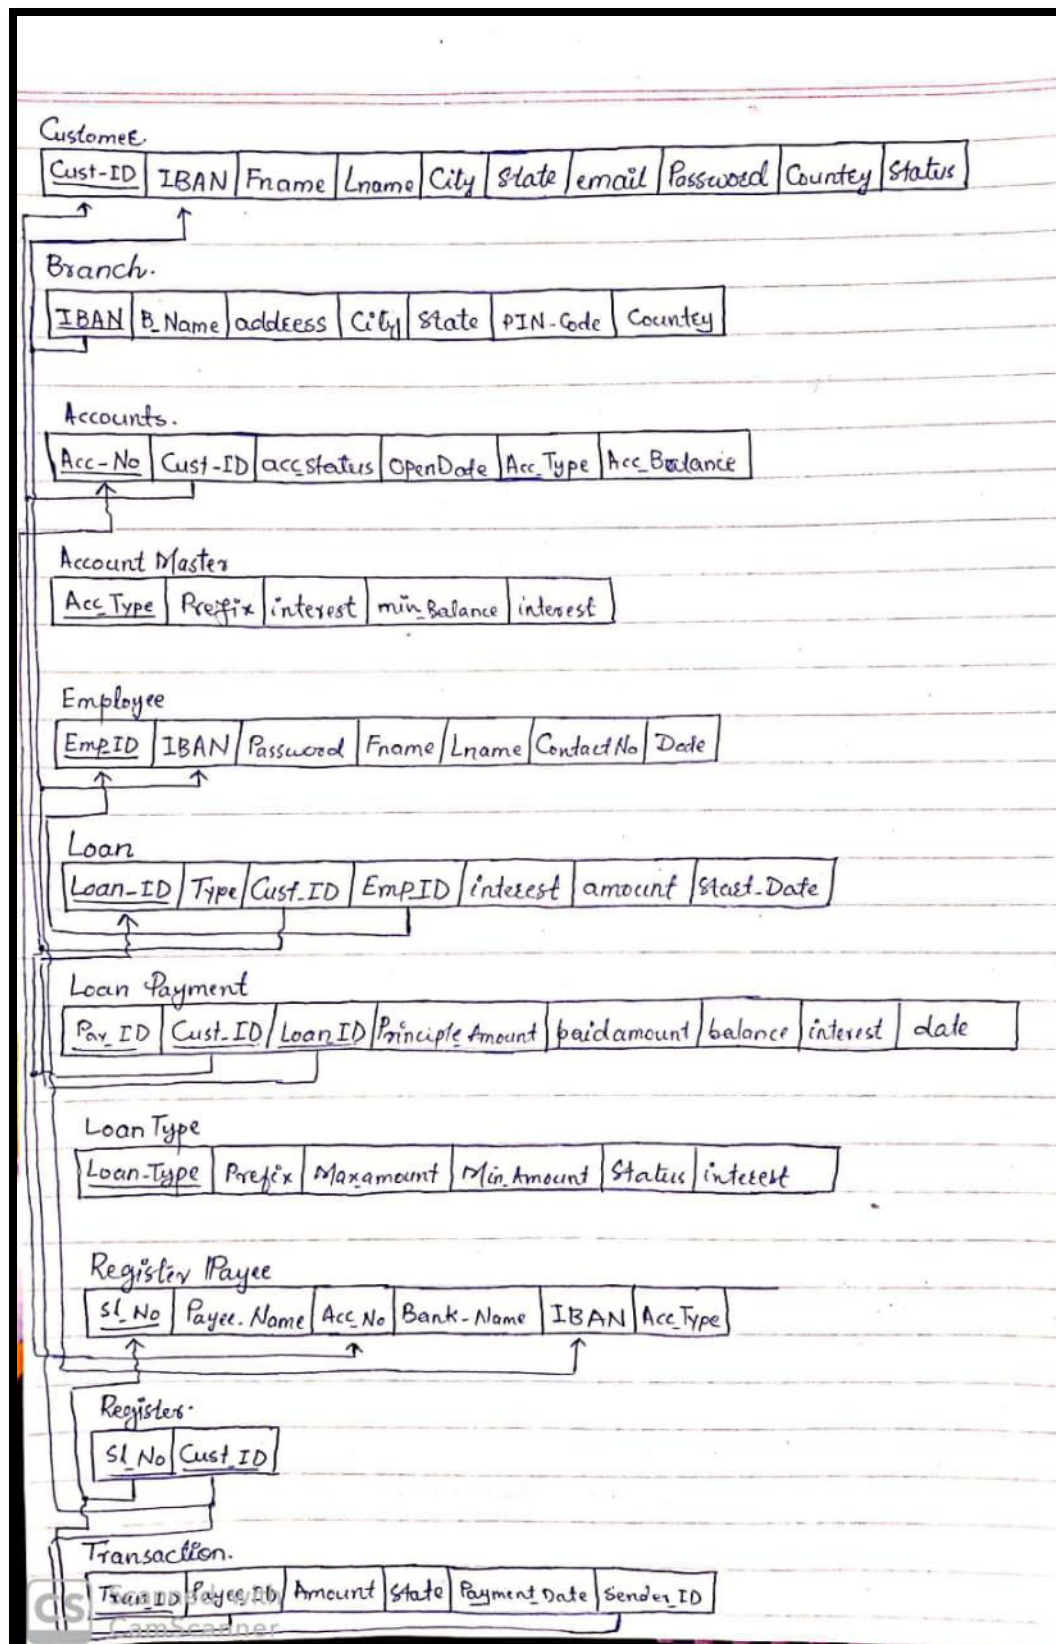 Customer
Cust-ID IBAN Fname Lname City State email Password Country Status
Branch.
IBAN B_Name address City State PIN-Code Country
Accounts.
Acc-No Cust-ID acc_status OpenDate Acc_Type Acc_Balance
Account Master
Acc_Type Prefix interest min_Balance interest
Employee
Emp_ID IBAN Password Fname Lname Contact No
Loan
Loan-ID Type Cust_ID Emp_ID interest amount Start-Date
Loan Payment
Pay_ID Cust_ID Loan ID Principle Amount paid amount balance interest date
Loan Type
Loan-Type Prefix Max amount Min_Amount Status interest
Register Payee
Sl_No Payee-Name Acc_No Bank-Name IBAN Acc_Type
Register.
Sl_No Cust_ID
Transaction.
Tran_ID Amount State Payment_Date Sender_ID
CS Scanned with
CamScanner